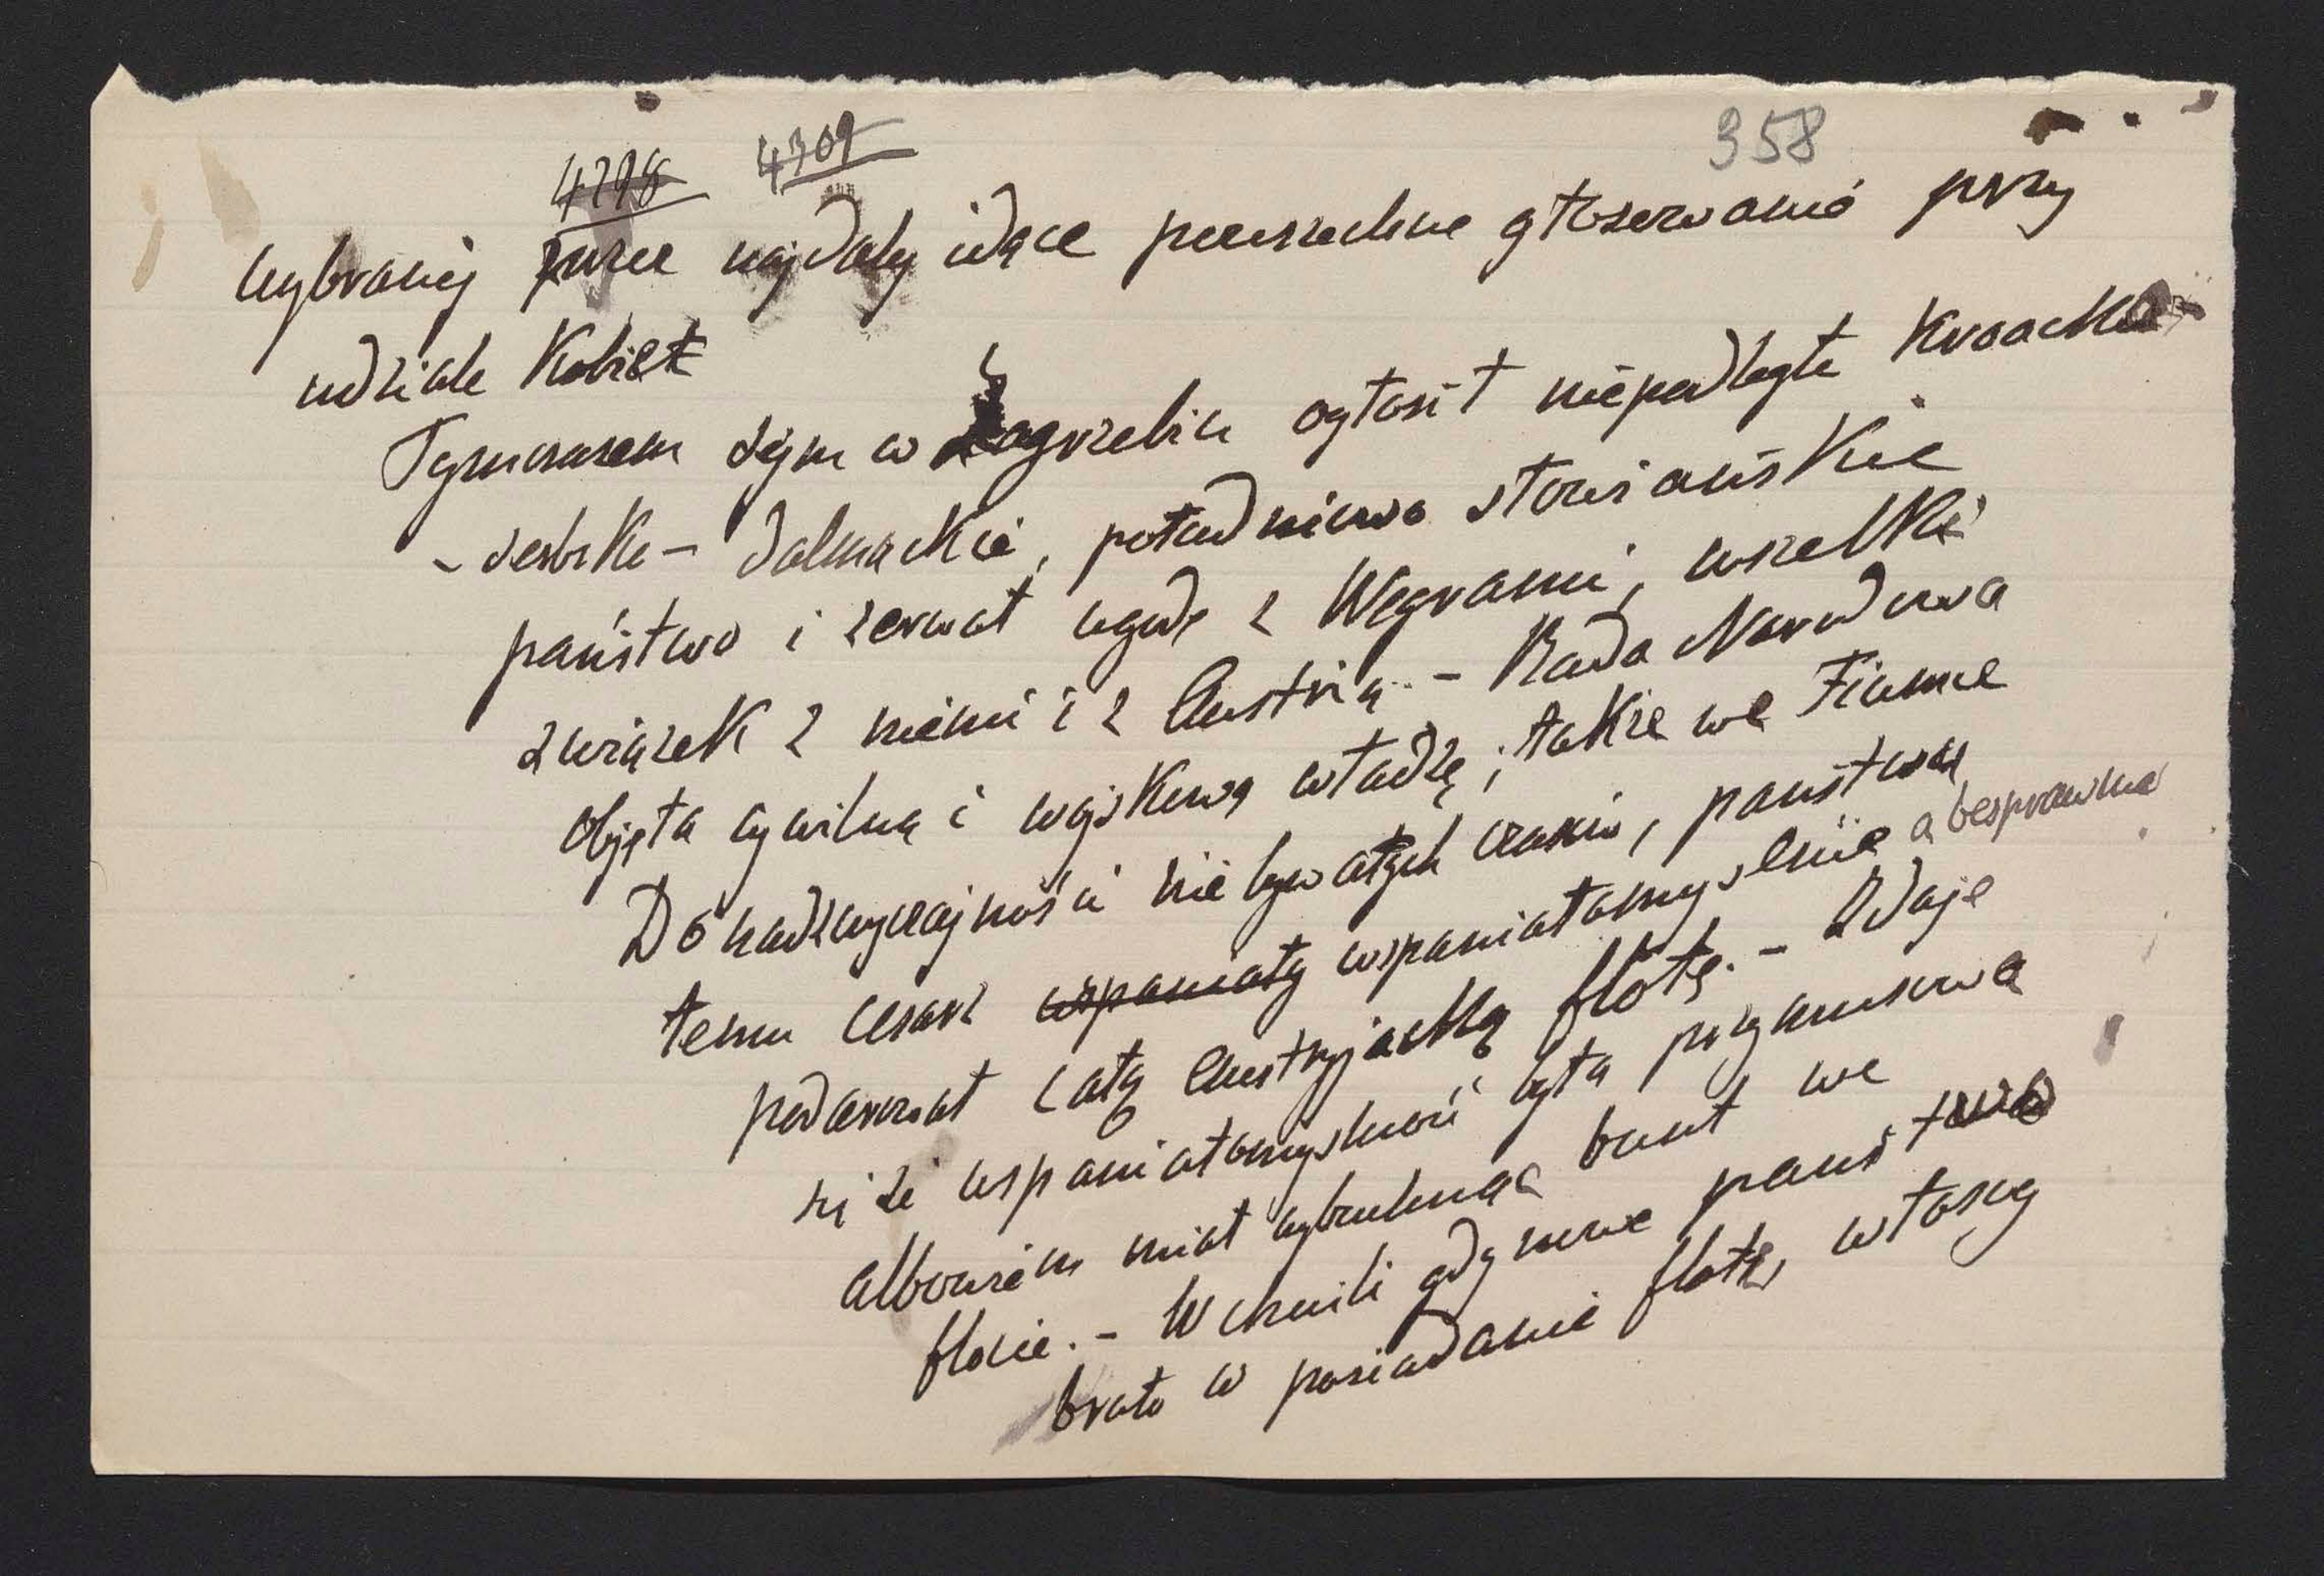 4298 4309 358
wybranej przez najdalej idące powszechne głosowanie przy
udziale Kobiet
Tymczasem sejm w Zagrzebiu ogłosił niepodległe Kroacko-
- serbsko - dalmackie, południowo słowiańskie
państwo i zerwał ugodę z Węgrami, wszelki
związek z niemi i z Austrią. - Rada Narodowa
objęła cywilną i wojskową władzę; także we Fiume
Do nadzwyczajności niebywałych czasów, państwu
temu cesarz wspaniały wspaniałomyślnie a bezprawnie
podarował całą Austryjacką flotę. - Zdaje
się że wspaniałomyślność była przymusowa
albowiem miał wybuchnąć bunt we
flocie. - W chwili gdy nowe państwo
brało w posiadanie flotę, włoscy